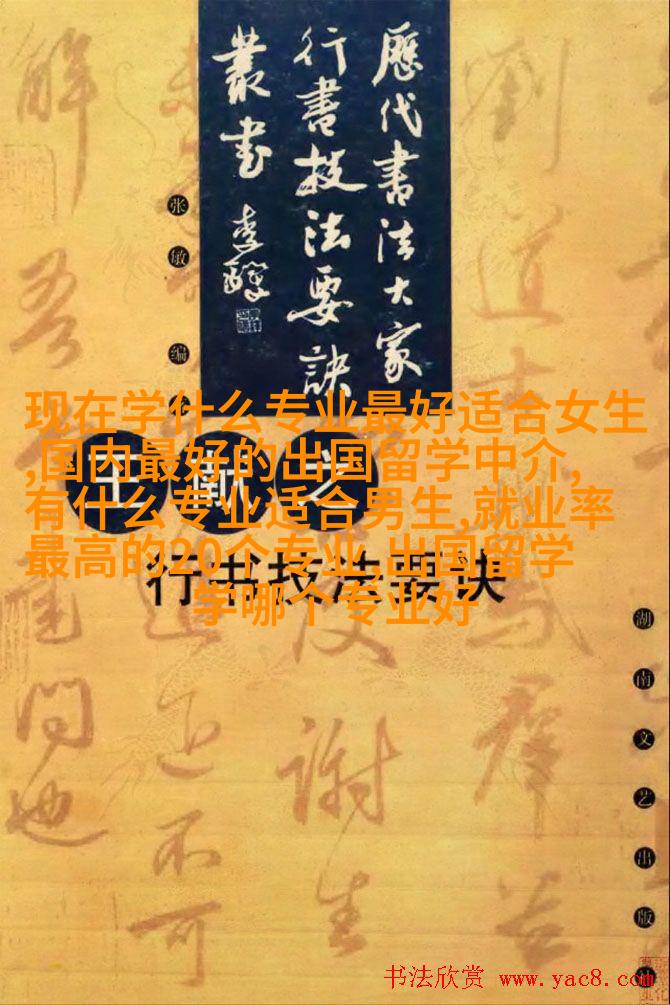 歷代書法大家
行書技法要訣
叢書
张敏编
现在学什么专业最好适合女生
,国内最好的出国留学中介,
有什么专业适合男生,就业率
最高的20个专业,出国留学
学哪个专业好
王献之
行书技法要诀
湖南文艺出版社
劉道士
鵝群
謝生
迟不可
解
尚
問也
书法欣赏 www.yac8.com